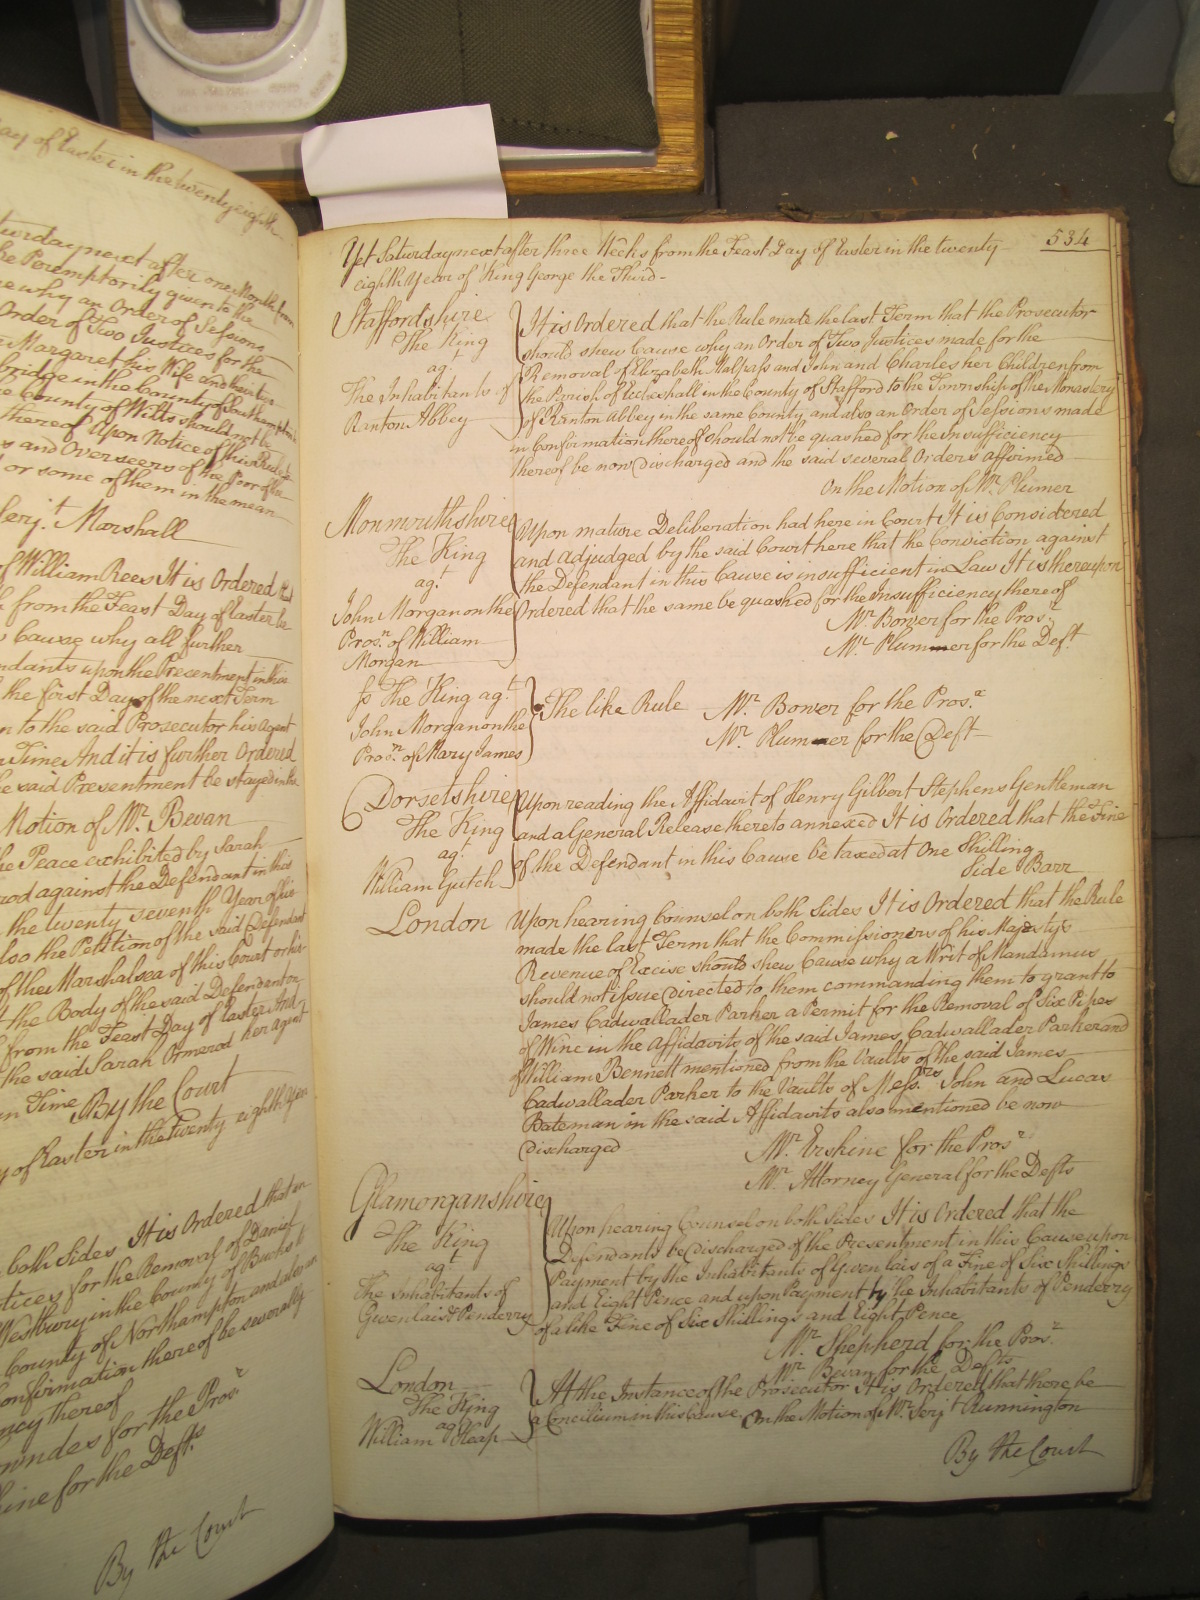 ay of Easter in the twenty eighth
turday next after one Month from
he Peremptorily given to the
e why an Order of Sessions
Order of Two Justices for the
Margaret his Wife and
bridge in the County of Southampton
e County of Wilts should not be
thereof Upon Notice of this Rule
s and Overseers of the Poor of the
or some of them in the mean
Serj.t Marshall
of William Rees It is Ordered that
from the Feast Day of Easter be
Cause why all further
ndants upon the Presentment in this
the first Day of the next Term
n to the said Prosecutor his Agent
Time And it is further Ordered
e said Presentment be stayed in the
Motion of Mr. Bevan
he Peace exhibited by Sarah
rod against the Defendant in this
the twenty seventh Year of his
lso the Petition of the said Defendant
of the Marshalsea of this Court or his
t the Body of the said Defendant on
from the Feast Day of Easter And
the said Sarah Ormerod her Agent
n Time By the Court
y of Easter in the twenty eighth Year
both Sides It is Ordered that an
tices for the Removal of Daniel
Westbury in the County of Bucks to
County of Northampton and also an
onfirmation thereof be severally
ncy thereof
owndes for the Pros.r
ine for the Defts
By the Court
534
Yet Saturday next after three Weeks from the Feast Day of Easter in the twenty
eighth Year of King George the Third
Staffordshire
The King
ag.t
The Inhabitants of
Ranton Abbey
It is Ordered that the Rule made the last Term that the Prosecutor
should shew Cause why an Order of Two Justices made for the
Removal of Elizabeth Malpass and John and Charles her Children from
the Parish of Eccleshall in the County of Stafford to the Township of the Monastery
of Ranton Abbey in the same County and also an Order of Sessions made
in Confirmation thereof should not be quashed for the Insufficiency
thereof be now Discharged and the said several Orders affirmed
On the Motion of Mr. Plumer
Monmouthshire
The King
ag.t
John Morgan on the
Pros.n of William
Morgan
Upon mature Deliberation had here in Court It is Considered
and adjudged by the said Court here that the Conviction against
the Defendant in this Cause is insufficient in Law It is thereupon
Ordered that the same be quashed for the Insufficiency thereof
Mr. Bower for the Pros.r
Mr. Plummer for the Deft.
Ss The King ag.t
John Morgan on the
Pros.n of Mary James
The like Rule Mr. Bower for the Pros.r
Mr. Plummer for the Deft
Dorsetshire
The King
ag.t
William Gutch
Upon reading the Affidavit of Henry Gilbert Stephens Gentleman
and a General Release thereto annexed It is Ordered that the Fine
of the Defendant in this Cause be taxed at One Shilling
Side Barr
London
Upon hearing Counsel on both Sides It is Ordered that the Rule
made the last Term that the Commissioners of his Majesty's
Revenue of Excise should shew Cause why a Writ of Mandamus
should not issue Directed to them commanding them to grant to
James Cadwallader Parker a Permit for the Removal of Six Pipes
of Wine in the Affidavits of the said James Cadwallader Parker and
of William Bennett mentioned from the Vaults of the said James
Cadwallader Parker to the Vaults of Mess.rs John and Lucas
Bateman in the said Affidavits also mentioned be now
Discharged
Mr. Erskine for the Pros.r
Mr. Attorney General for the Defts
Glamorganshire
The King
ag.t
The Inhabitants of
Gwenlais & Penderry
Upon hearing Counsel on both Sides It is Ordered that the
Defendants be Discharged of the Presentment in this Cause upon
Payment by the Inhabitants of Gwenlais of a Fine of Six Shillings
and Eight Pence and upon Payment by the Inhabitants of Penderry
of a like Fine of Six Shillings and Eight Pence
Mr. Shepherd for the Pros.r
Mr. Bevan for the Defts
London
The King
ag.t
William Heap
At the Instance of the Prosecutor It is Ordered that there be
a Concilium in this Cause On the Motion of Mr. Serj.t Runnington
By the Court